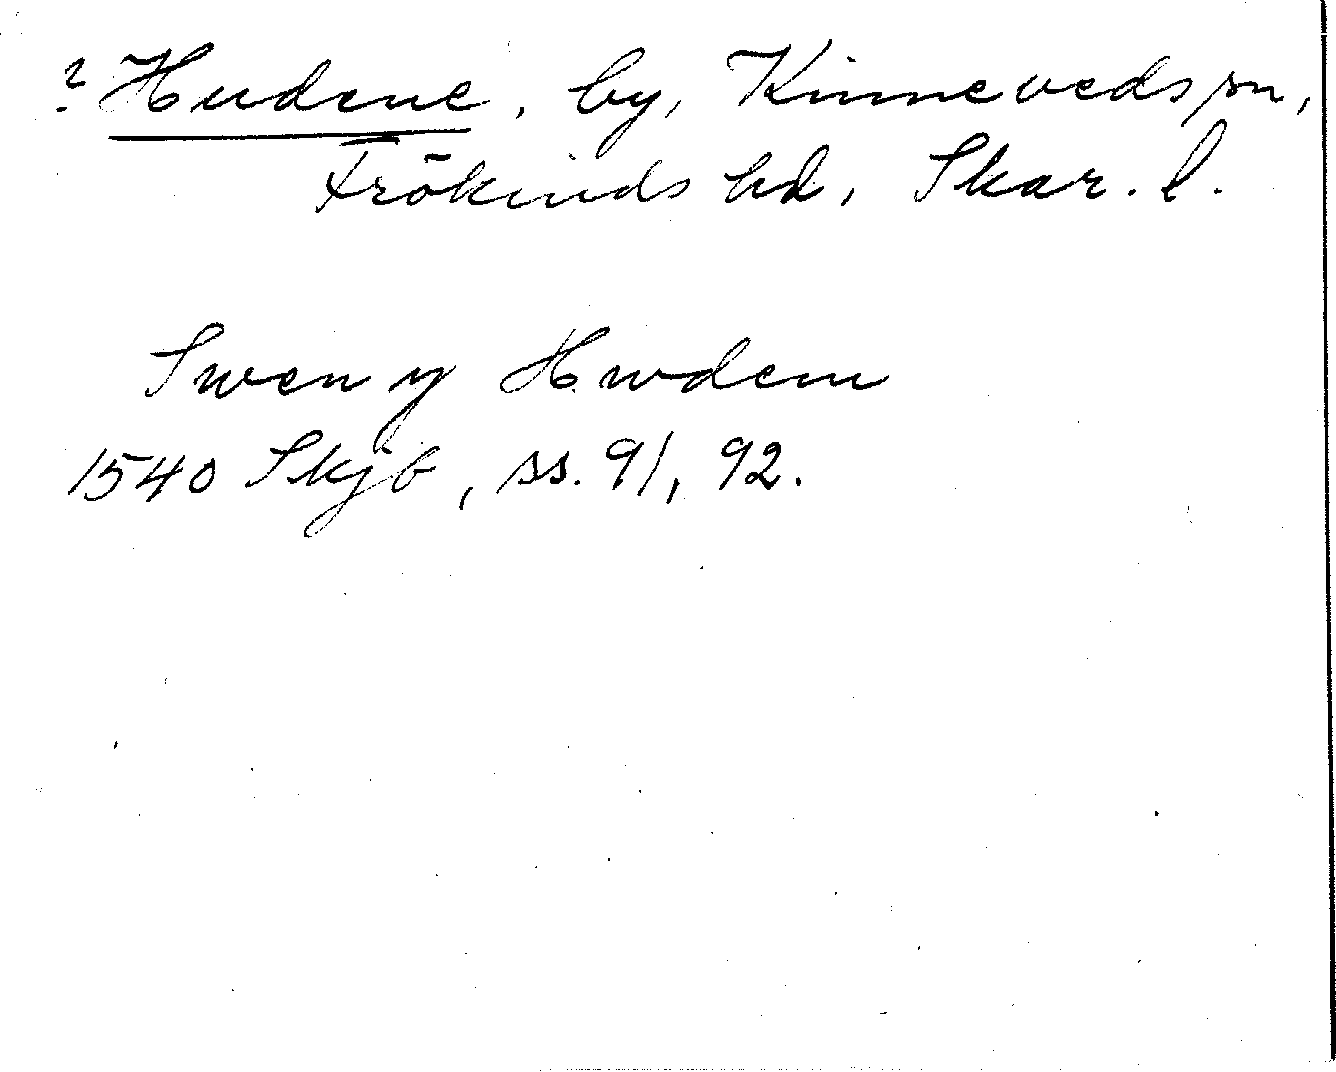 ? Hudene, by, Kinneveds sn,
Frökinds hd, Skar. l.
Swen y Hwdem
1540 Skjb, ss. 91, 92.